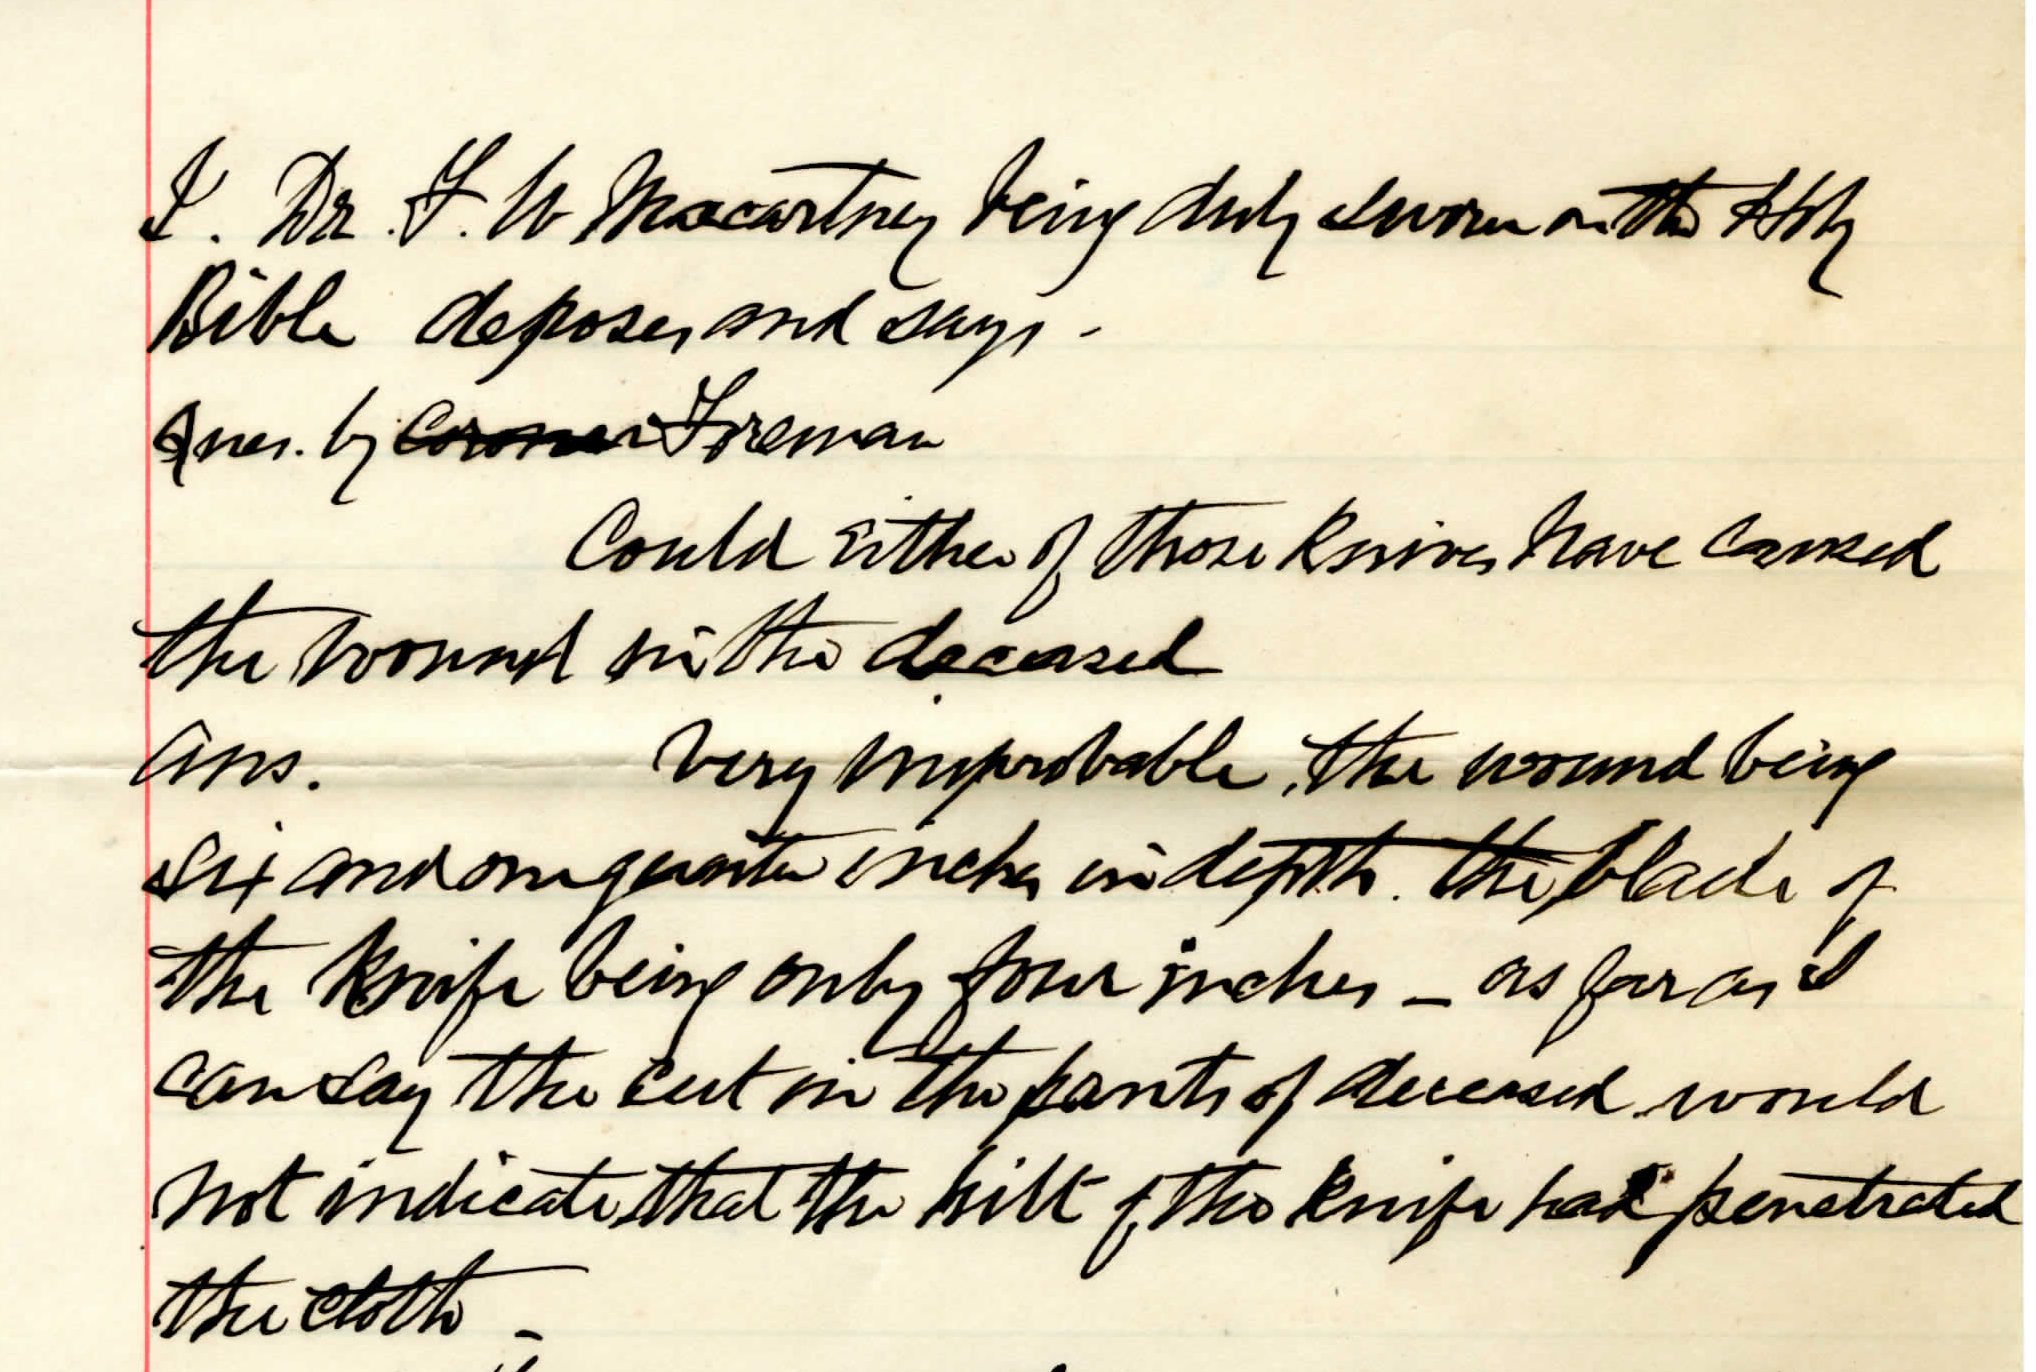 I. Dr. F. W Macartney being duly sworn on the Holy
Bible deposes and says -
Ques. by Coroner Foreman
Could either of those knives have caused
the wound in the deceased
Ans. Very improbable, the wound being
six and one quarter inches in depth. the blade of
the knife being only four inches - as far as I
can say the cut in the pants of deceased would
not indicate that the hilt of the knife had penetrated
the cloth -